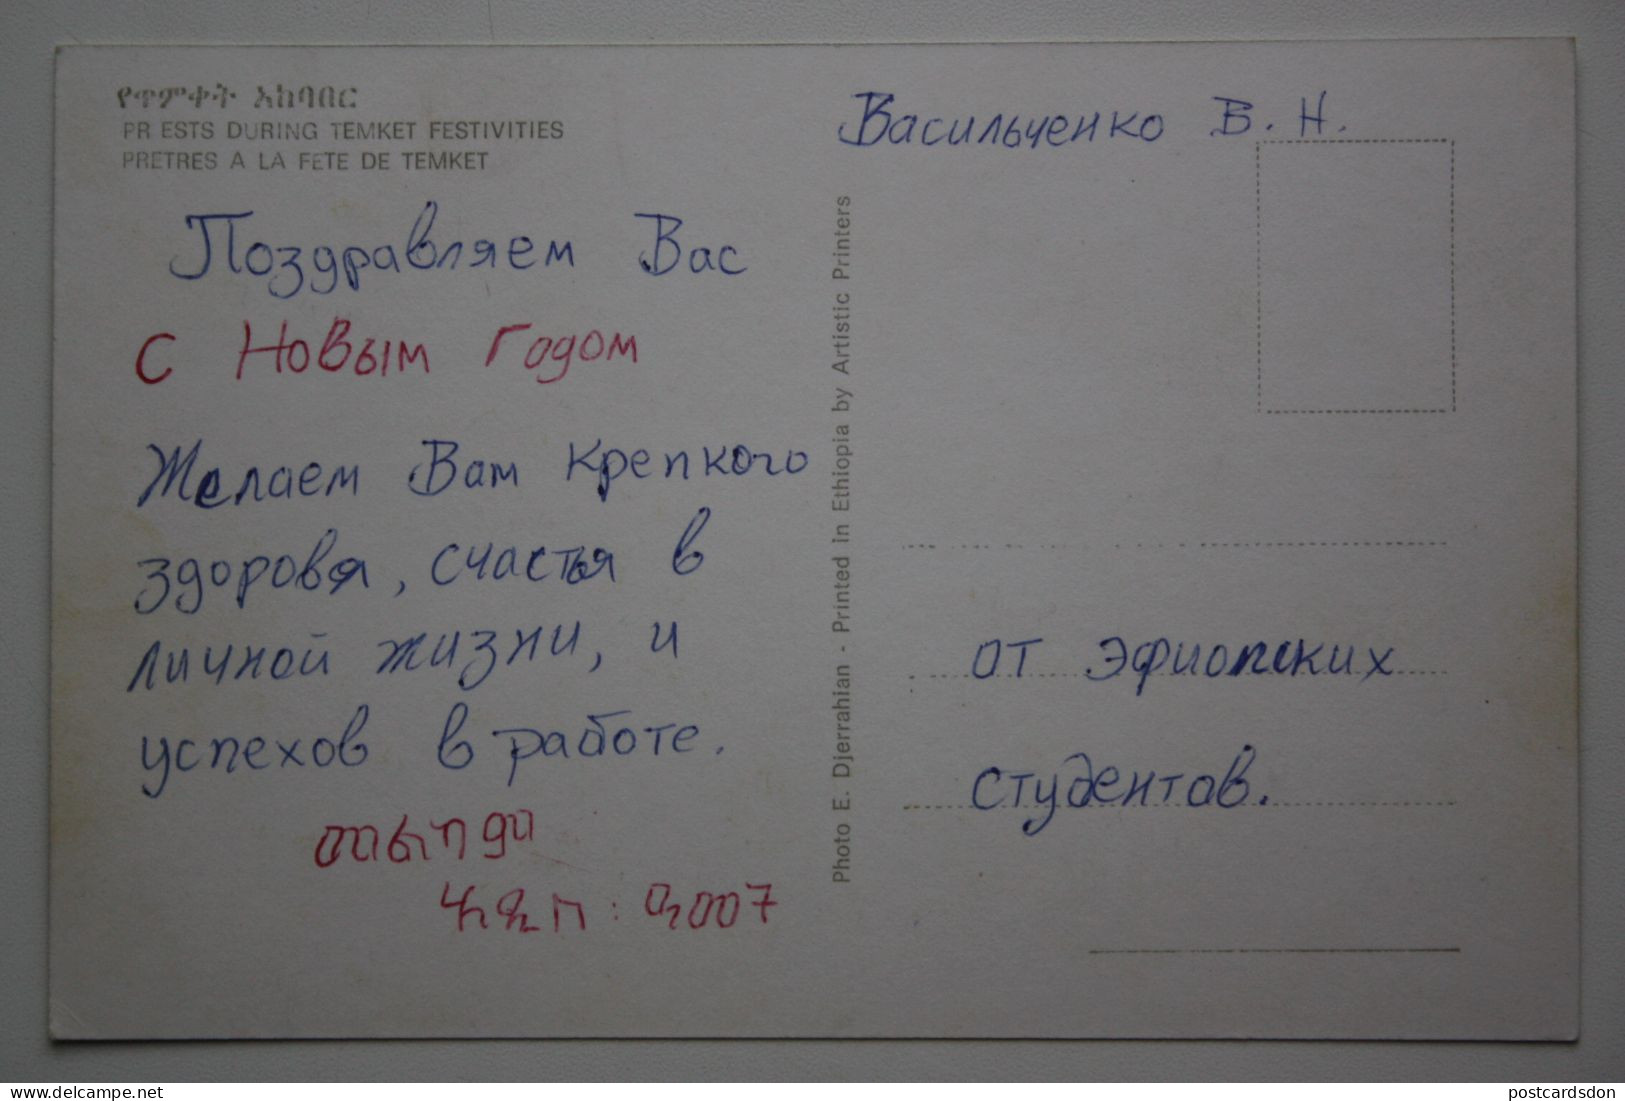 የጥምቀት አከባበር
PR ESTS DURING TEMKET FESTIVITIES
PRETRES A LA FETE DE TEMKET
Поздравляем Вас
с Новым годом
Желаем Вам крепкого
здоровья, счастья в
личной жизни, и
успехов в работе.
መልካም
አዲስ : ዓመት
Photo E. Djerrahian - Printed in Ethiopia by Artistic Printers
Васильченко В. Н.
от эфиопских
студентов.
https://www.delcampe.net
postcardsdon